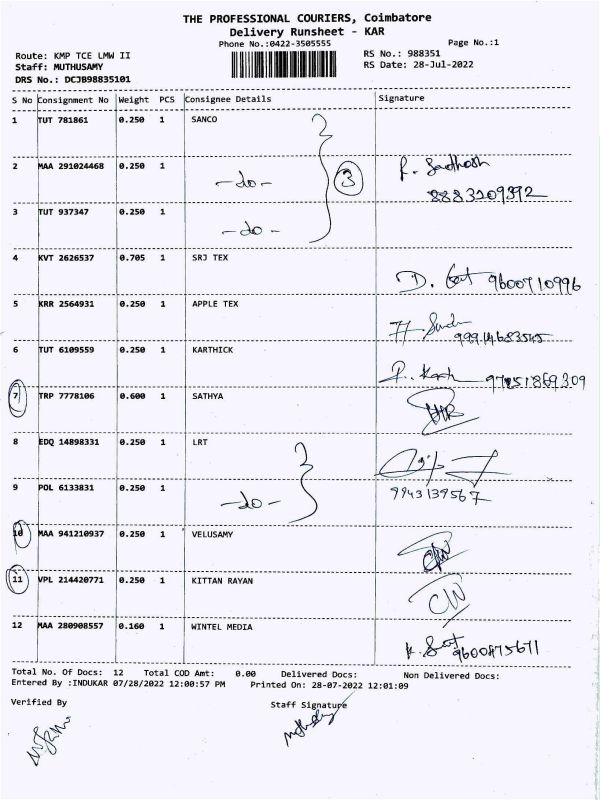 THE PROFESSIONAL COURIERS, Coimbatore
Delivery Runsheet - KAR
Phone No.:0422-3505555
Page No.:1
Route: KMP TCE LMW II
RS No.: 988351
Staff: MUTHUSAMY
RS Date: 28-Jul-2022
DRS No.: DCJB98835101
S No Consignment No Weight PCS Consignee Details Signature
1 TUT 781861 0.250 1 SANCO
2 MAA 291024468 0.250 1 -do- 3
8883109392
3 TUT 937347 0.250 1 -do-
4 KVT 2626537 0.705 1 SRJ TEX
D. 9600710996
5 KRR 2564931 0.250 1 APPLE TEX
6 TUT 6109559 0.250 1 KARTHICK
7 TRP 7778106 0.600 1 SATHYA
8 EDQ 14898331 0.250 1 LRT
9 POL 6133831 0.250 1 -do- 9943139567
10 MAA 941210937 0.250 1 VELUSAMY
11 VPL 214420771 0.250 1 KITTAN RAYAN
CW
12 MAA 280908557 0.160 1 WINTEL MEDIA
Total No. Of Docs: 12 Total COD Amt: 0.00 Delivered Docs: Non Delivered Docs:
Entered By :INDUKAR 07/28/2022 12:00:57 PM Printed On: 28-07-2022 12:01:09
Verified By
Staff Signature